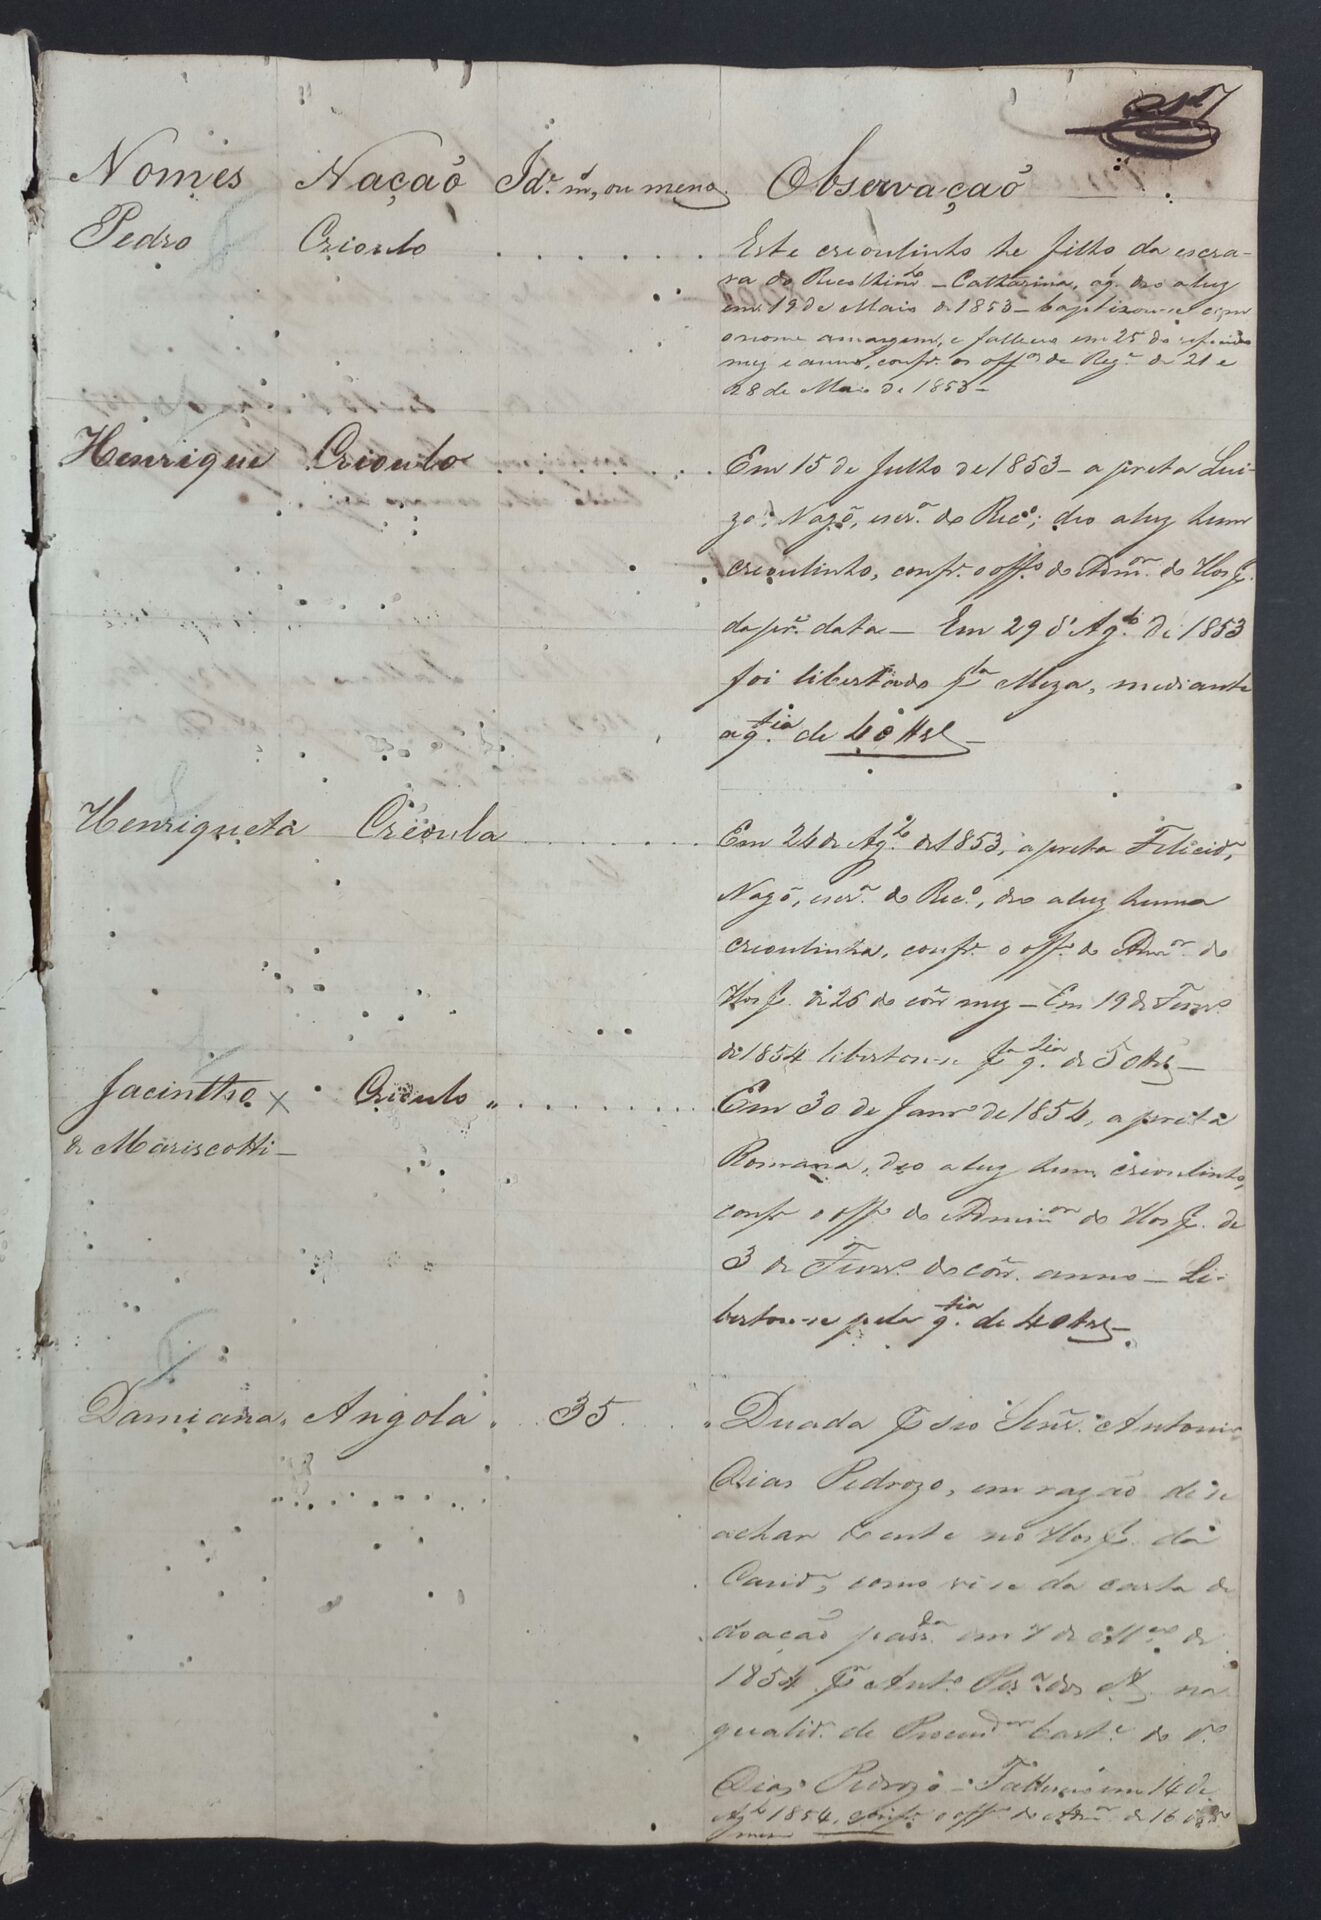 Nomes Nação Id.e m., ou meno. Observação
Pedro Crioulo . . . . . . Este crioulinho he filho da escra-
va do Recolhim.to – Catharina, q. deo a luz
em 19 de Maio de 1853 – baptizou-se com
o nome a margem, e falleceo em 25 do referido
mez e anno, confr. os off.os do Reg.e de 21 e
28 de Maio de 1853 –
Henrique Crioulo . . . . . . Em 15 de Julho de 1853 – a preta Lui-
za, Nagô, escr.a do Rec.o; deo a luz hum
crioulinho, confr. o off.o do Adm.or do Hosp.
da pr.e data – Em 29 d' Ag.to de 1853
foi libertado p.la Meza, mediante
a q.tia de 40$rs –
Henriqueta Crioula . . . . . . Em 24 de Ag.to de 1853, a preta Felicid.e,
Nagô, escr.a do Rec.o, deo a luz huma
crioulinha, confr. o off.o do Adm.or do
Hosp. de 26 do corr. mez – Em 19 de Fever.o
de 1854 libertou-se p.la q.tia de 50$rs –
Jacintho x Crioulo „ . . . . . . Em 30 de Janr.o de 1854, a preta
de Mariscotti – Romana, deo a luz hum crioulinho,
confr. o off.o do Admin.or do Hosp. de
3 de Fever.o do corr. anno – Li-
bertou-se pela q.tia de 40$rs –
Damiana. Angola . . 35 . . . Duada p. seo Senr. Antonio
Dias Pedrozo, em razão de se
achar doente no Hosp. da
Carid.e, como vê se da carta de
doação pass.da em 7 de de
1854 p.r Ant.o na
qualid.e de Procurad.or bast.e do d.o
Dias Pedrozo – Falleceo em 14 de
Ag.to 1854, confr. o off.o do Adm.or de 16 do
mez